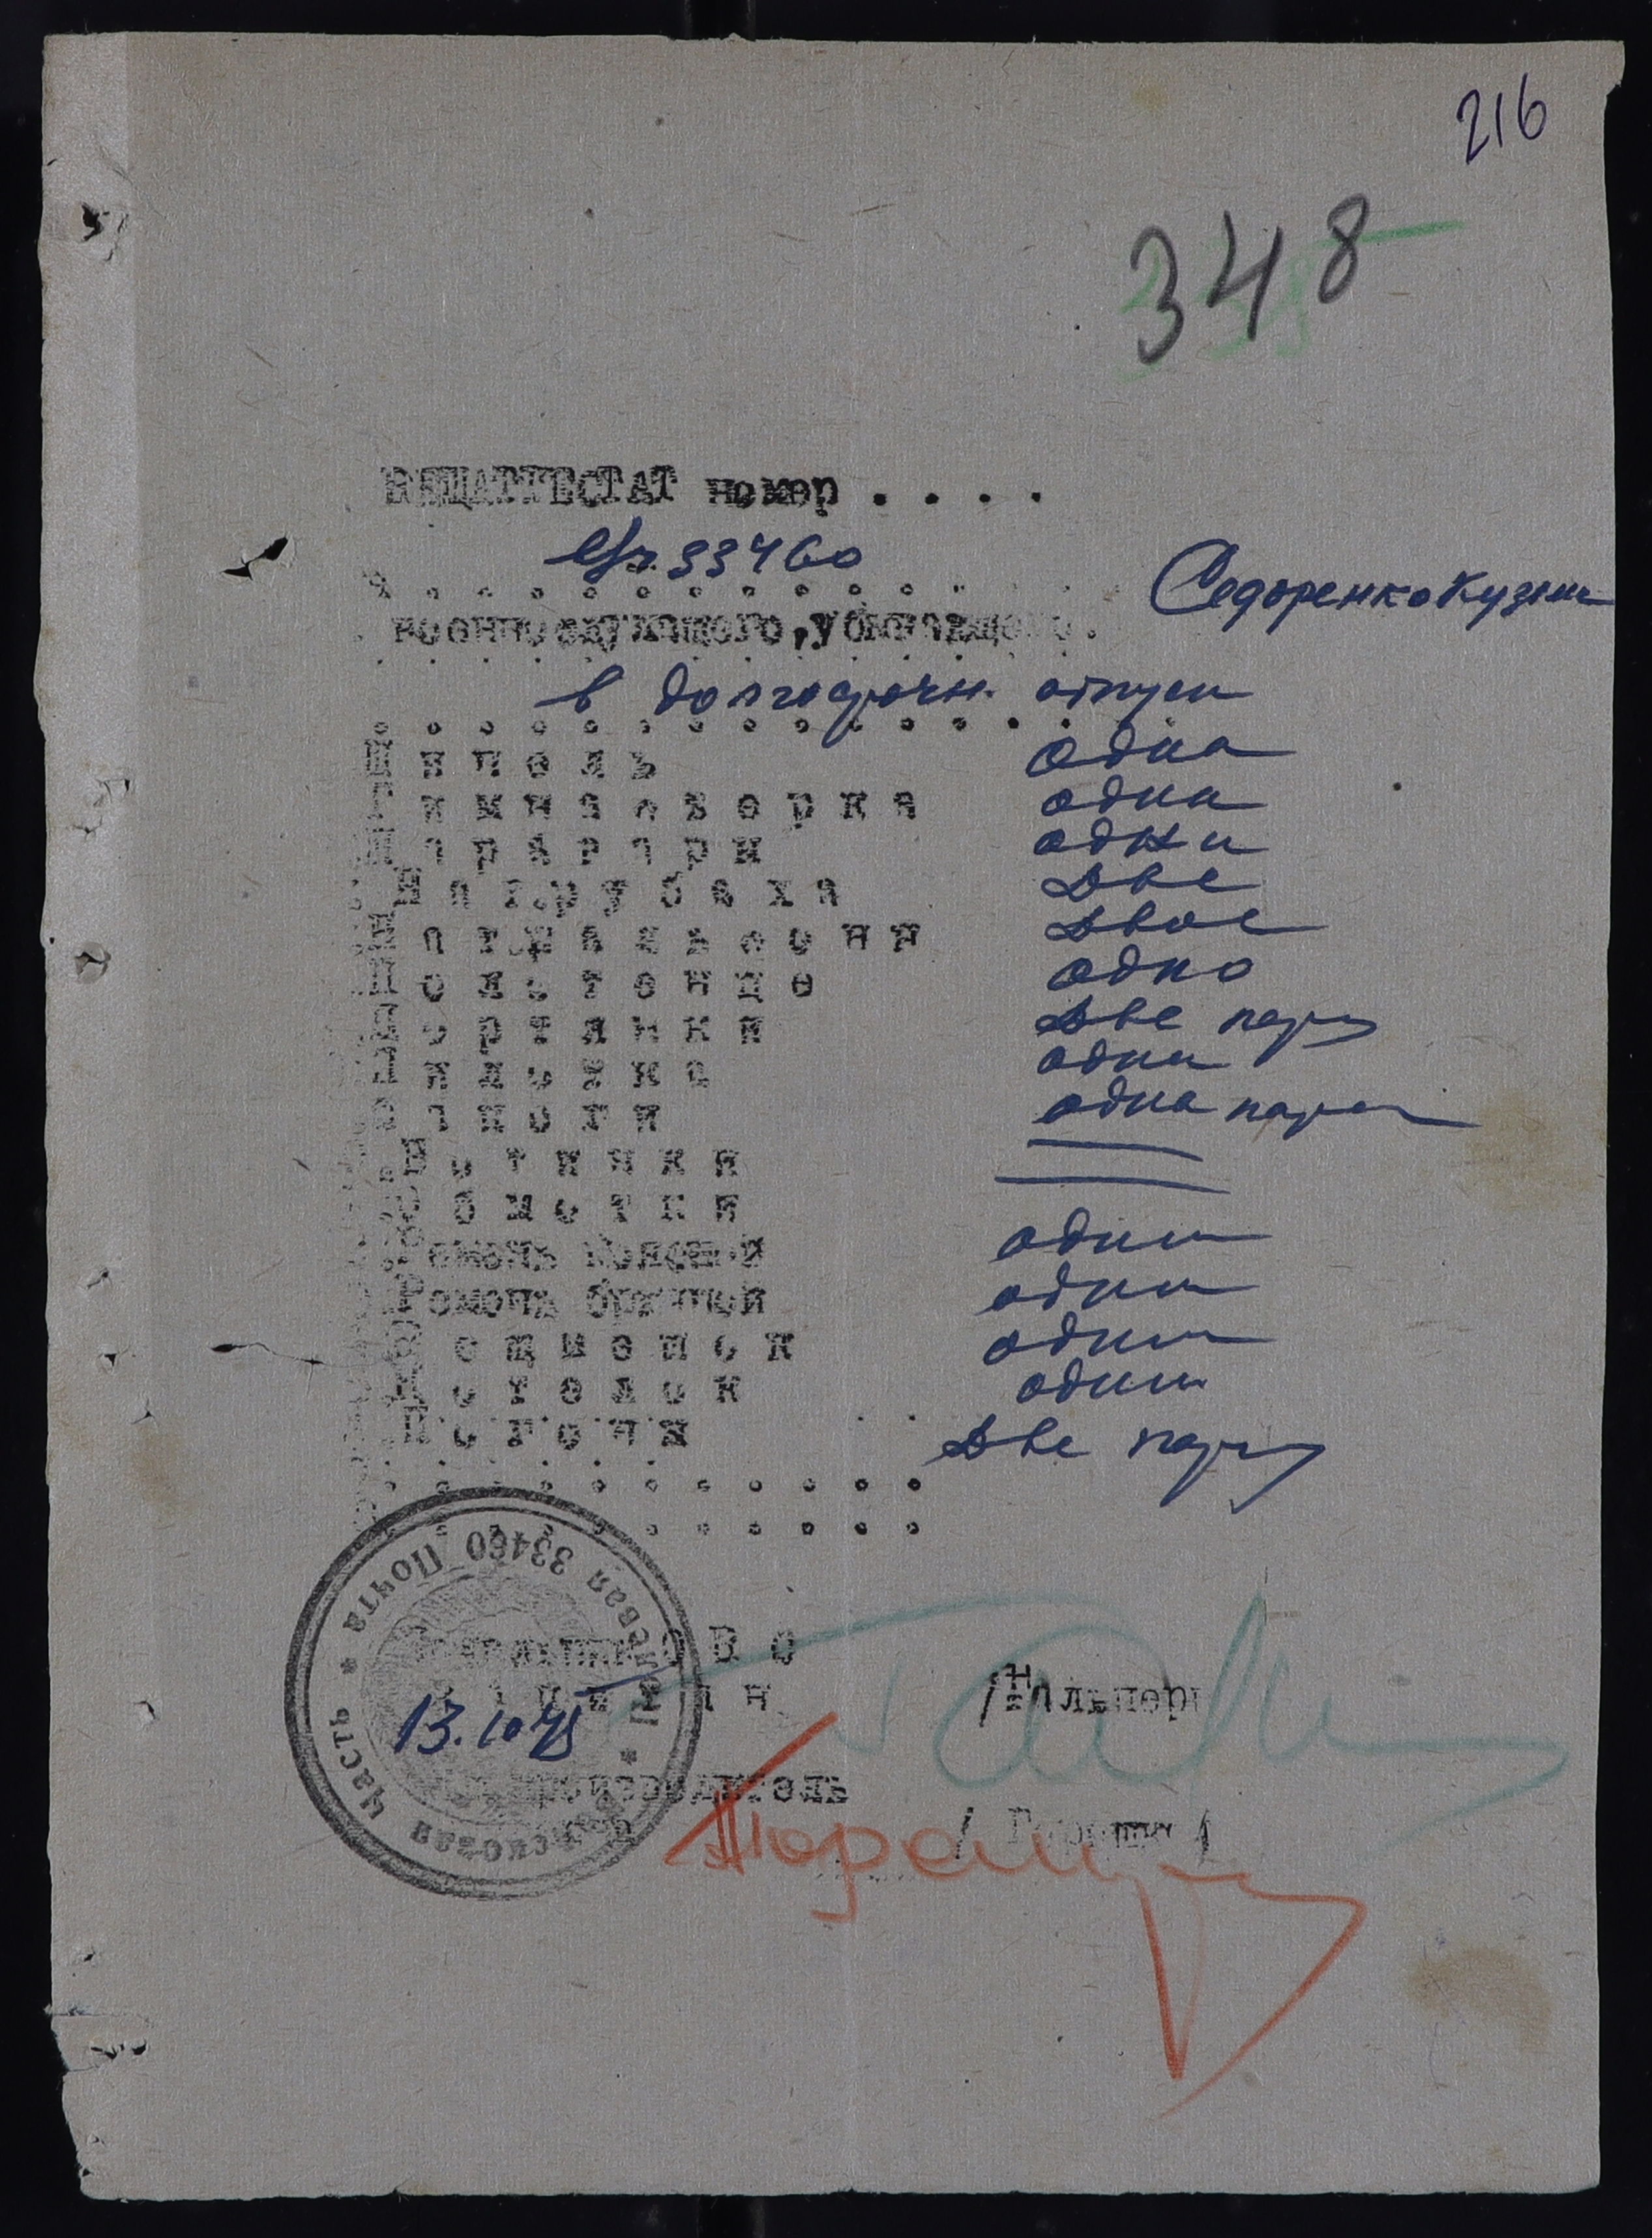 216
348
ВЕЩАТТЕСТАТ номер . . . .
33460
военнослужащего, убывающего.
Сидоренко Кузьма
в долгосрочн. отпуск
Шинель одна
Гимнастерка одна
Шаравари одни
Нат.рубаха две
Нат.кальсоны двое
Полотенце одно
Портянки две пары
Пилотка одна
Сапоги одна пара
Ботинки
Обмотки
Ремень поясной один
Ремень брючной один
Вещмешок один
Котелок один
Погоны две пары
Начальник ОВС
13.10.45
Войсковая Часть * Почта 33460 Полевая *